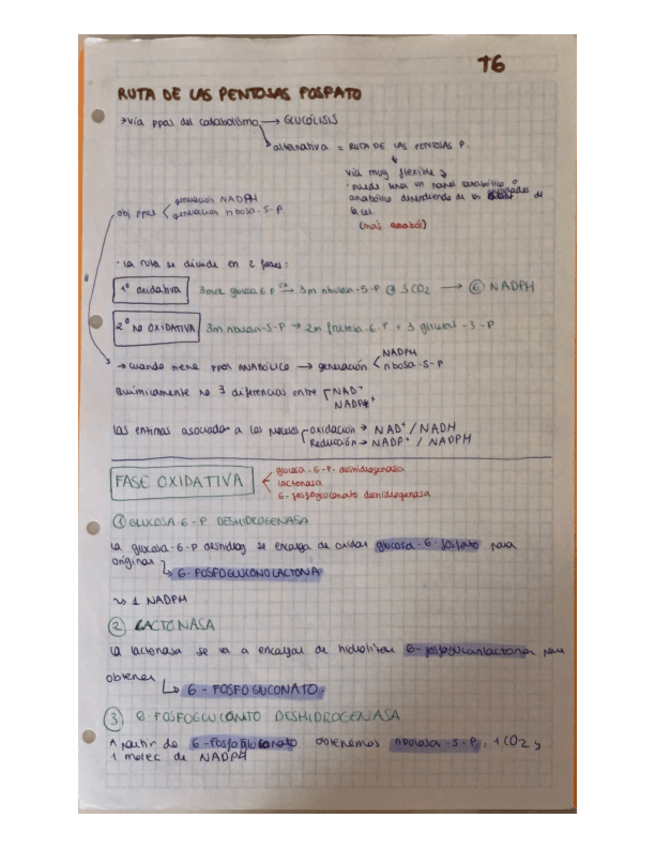 T6
RUTA DE LAS PENTOSAS FOSFATO
→ vía ppas del catabolismo → GLUCÓLISIS
alternativa = RUTA DE LAS PENTOSAS P.
↓
vía muy flexible
· puede tener un papel catabólico o
anabólico dependiendo de las necesidades de
la cel.
(mas anaból)
obj ppas < generación NADPH
generacion ribosa-5-P
· La ruta se divide en 2 fases:
1º oxidativa 3 mol glucosa 6 P → 3m ribulosa-5-P 3 CO2 → 6 NADPH
2º no OXIDATIVA 3m ribulosa-5-P → 2m fructosa-6-P + 3-P
→ cuando tiene ppal ANABÓLICO → generación < NADPH
ribosa-5-P
Químicamente no ∃ diferencias entre NAD+
NADP+
Las enzimas asociadas a los oxidación → NAD+ / NADH
Reducción → NADP+ / NADPH
FASE OXIDATIVA < glucosa-6-P-deshidrogenasa
lactonasa
6-fosfogluconato deshidrogenasa
① GLUCOSA-6-P DESHIDROGENASA
La glucosa-6-P deshidrog se encarga de oxidar glucosa-6-fosfato para
originar
↳ 6-FOSFOGLUCONOLACTONA
↝ 1 NADPH
② LACTONASA
La lactonasa se va a encargar de hidrolizar para
obtener
↳ 6-FOSFOGLUCONATO
③ 6-FOSFOGLUCONATO DESHIDROGENASA
A partir de 6-Fosfogluconato obtenemos ribulosa-5-P, 1 CO2 y
1 molec de NADPH